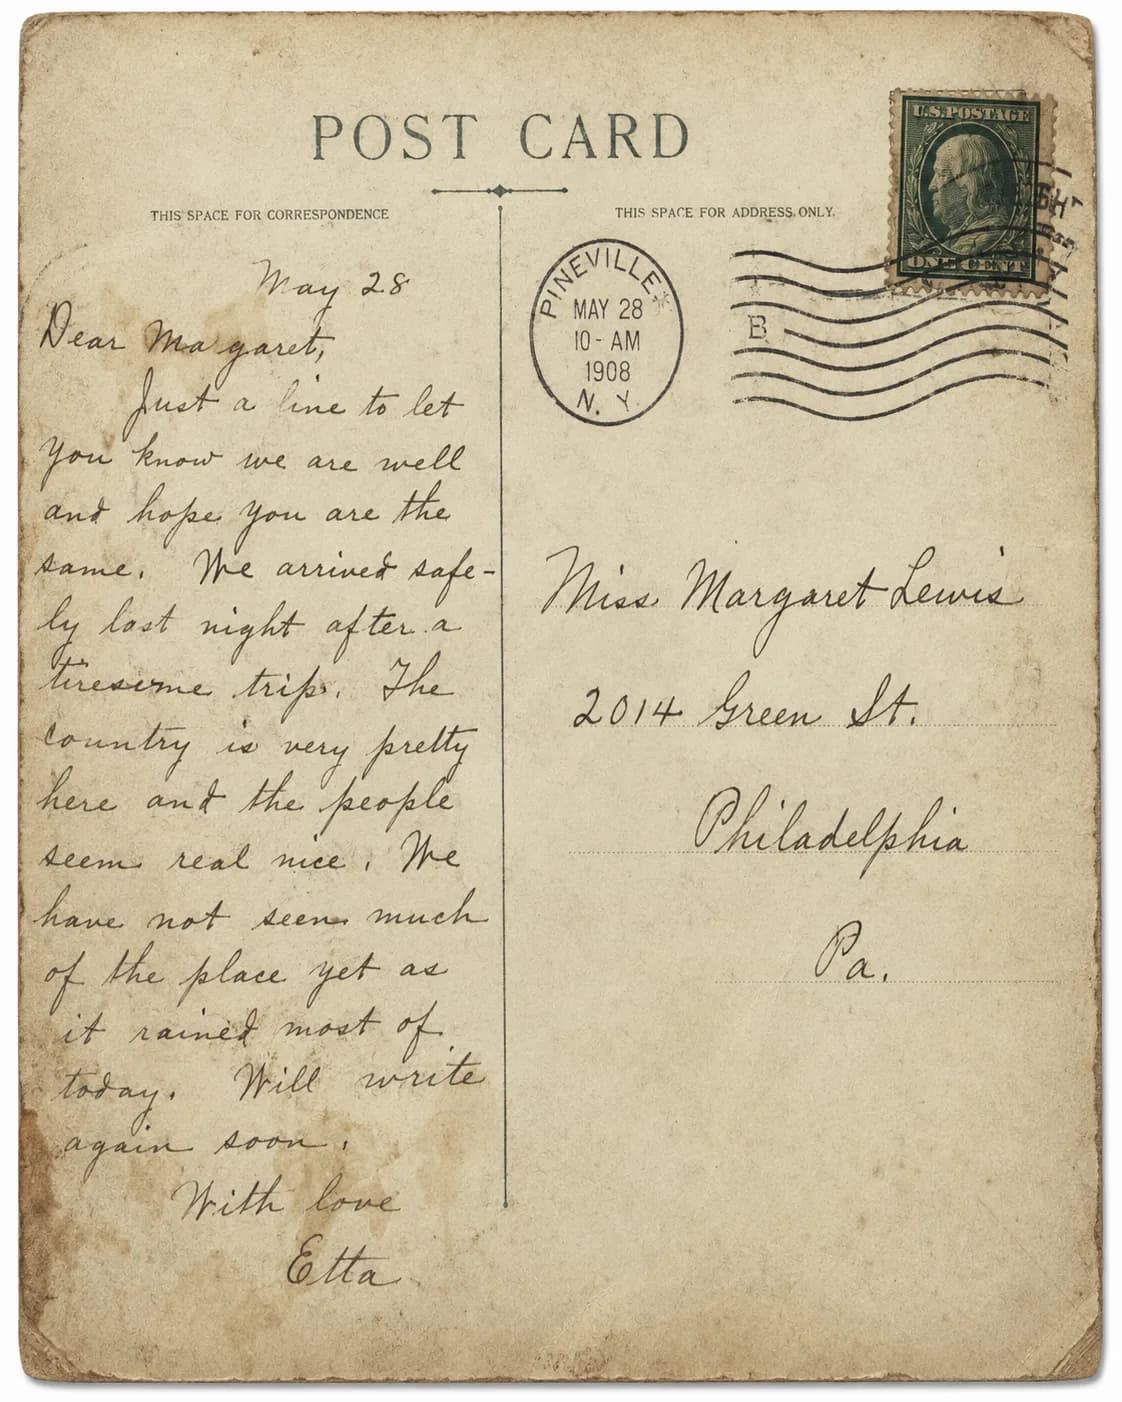 POST CARD
THIS SPACE FOR CORRESPONDENCE
May 28
Dear Margaret,
Just a line to let
you know we are well
and hope you are the
same. We arrived safe-
ly last night after a
tiresome trip. The
country is very pretty
here and the people
seem real nice. We
have not seen much
of the place yet as
it rained most of
today. Will write
again soon.
With love
Etta
THIS SPACE FOR ADDRESS ONLY.
U.S. POSTAGE
ONE CENT
PINEVILLE
MAY 28
10-AM
1908
N. Y.
B
Miss Margaret Lewis
2014 Green St.
Philadelphia
Pa.